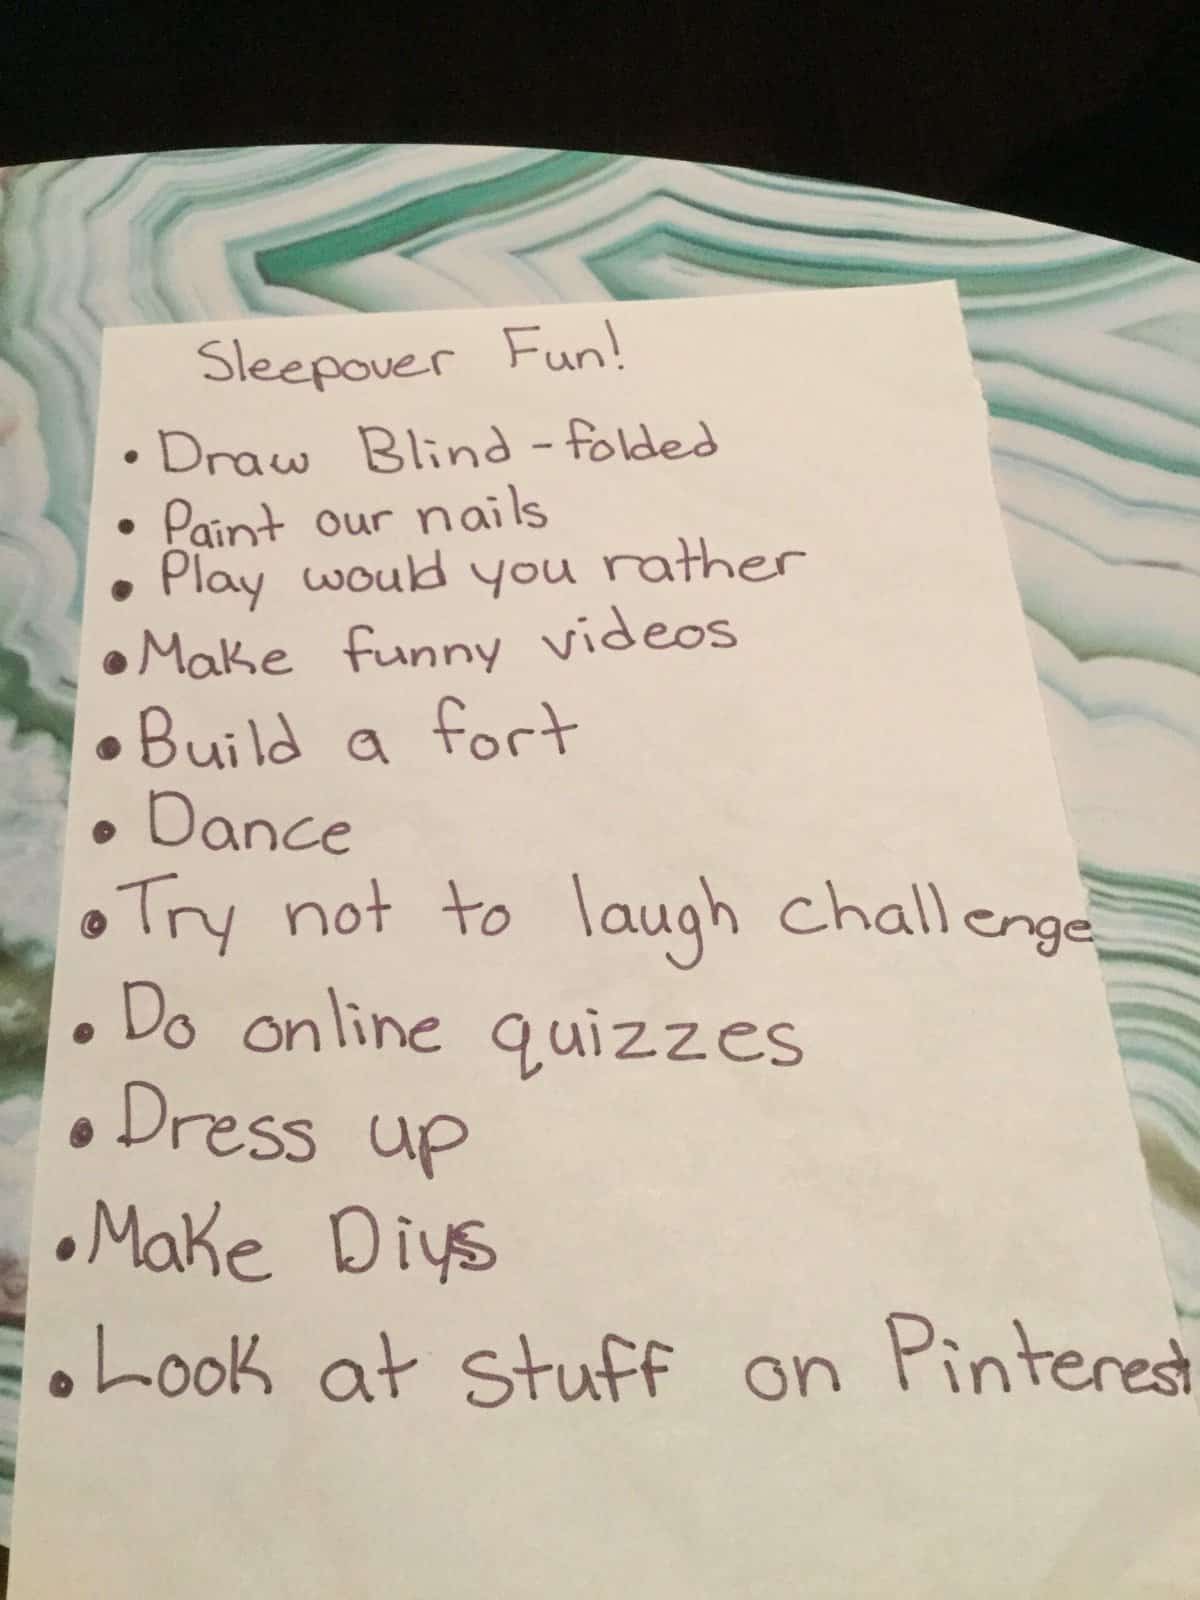 Sleepover Fun!
• Draw Blind-folded
• Paint our nails
• Play would you rather
• Make funny videos
• Build a fort
• Dance
• Try not to laugh challenge
• Do online quizzes
• Dress up
• Make Diys
• Look at stuff on Pinterest